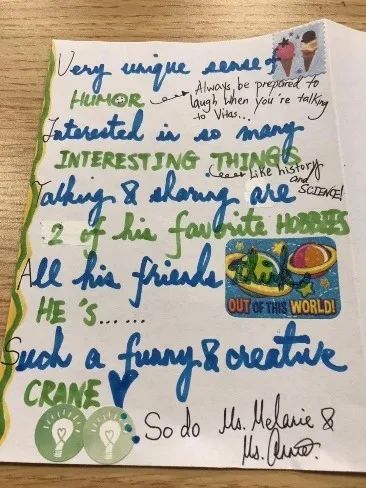 Very unique sense of
HUMOR → Always be prepared to
laugh when you're talking
to Vitas...
Interested in so many
INTERESTING THINGS
→ Like history
and
SCIENCE!
Talking & sharing are
2 of his favorite HOBBIES
All his friends think
OUT OF THIS WORLD!
HE'S......
Such a funny & creative
CRANE
So do Ms. Melanie &
Ms.